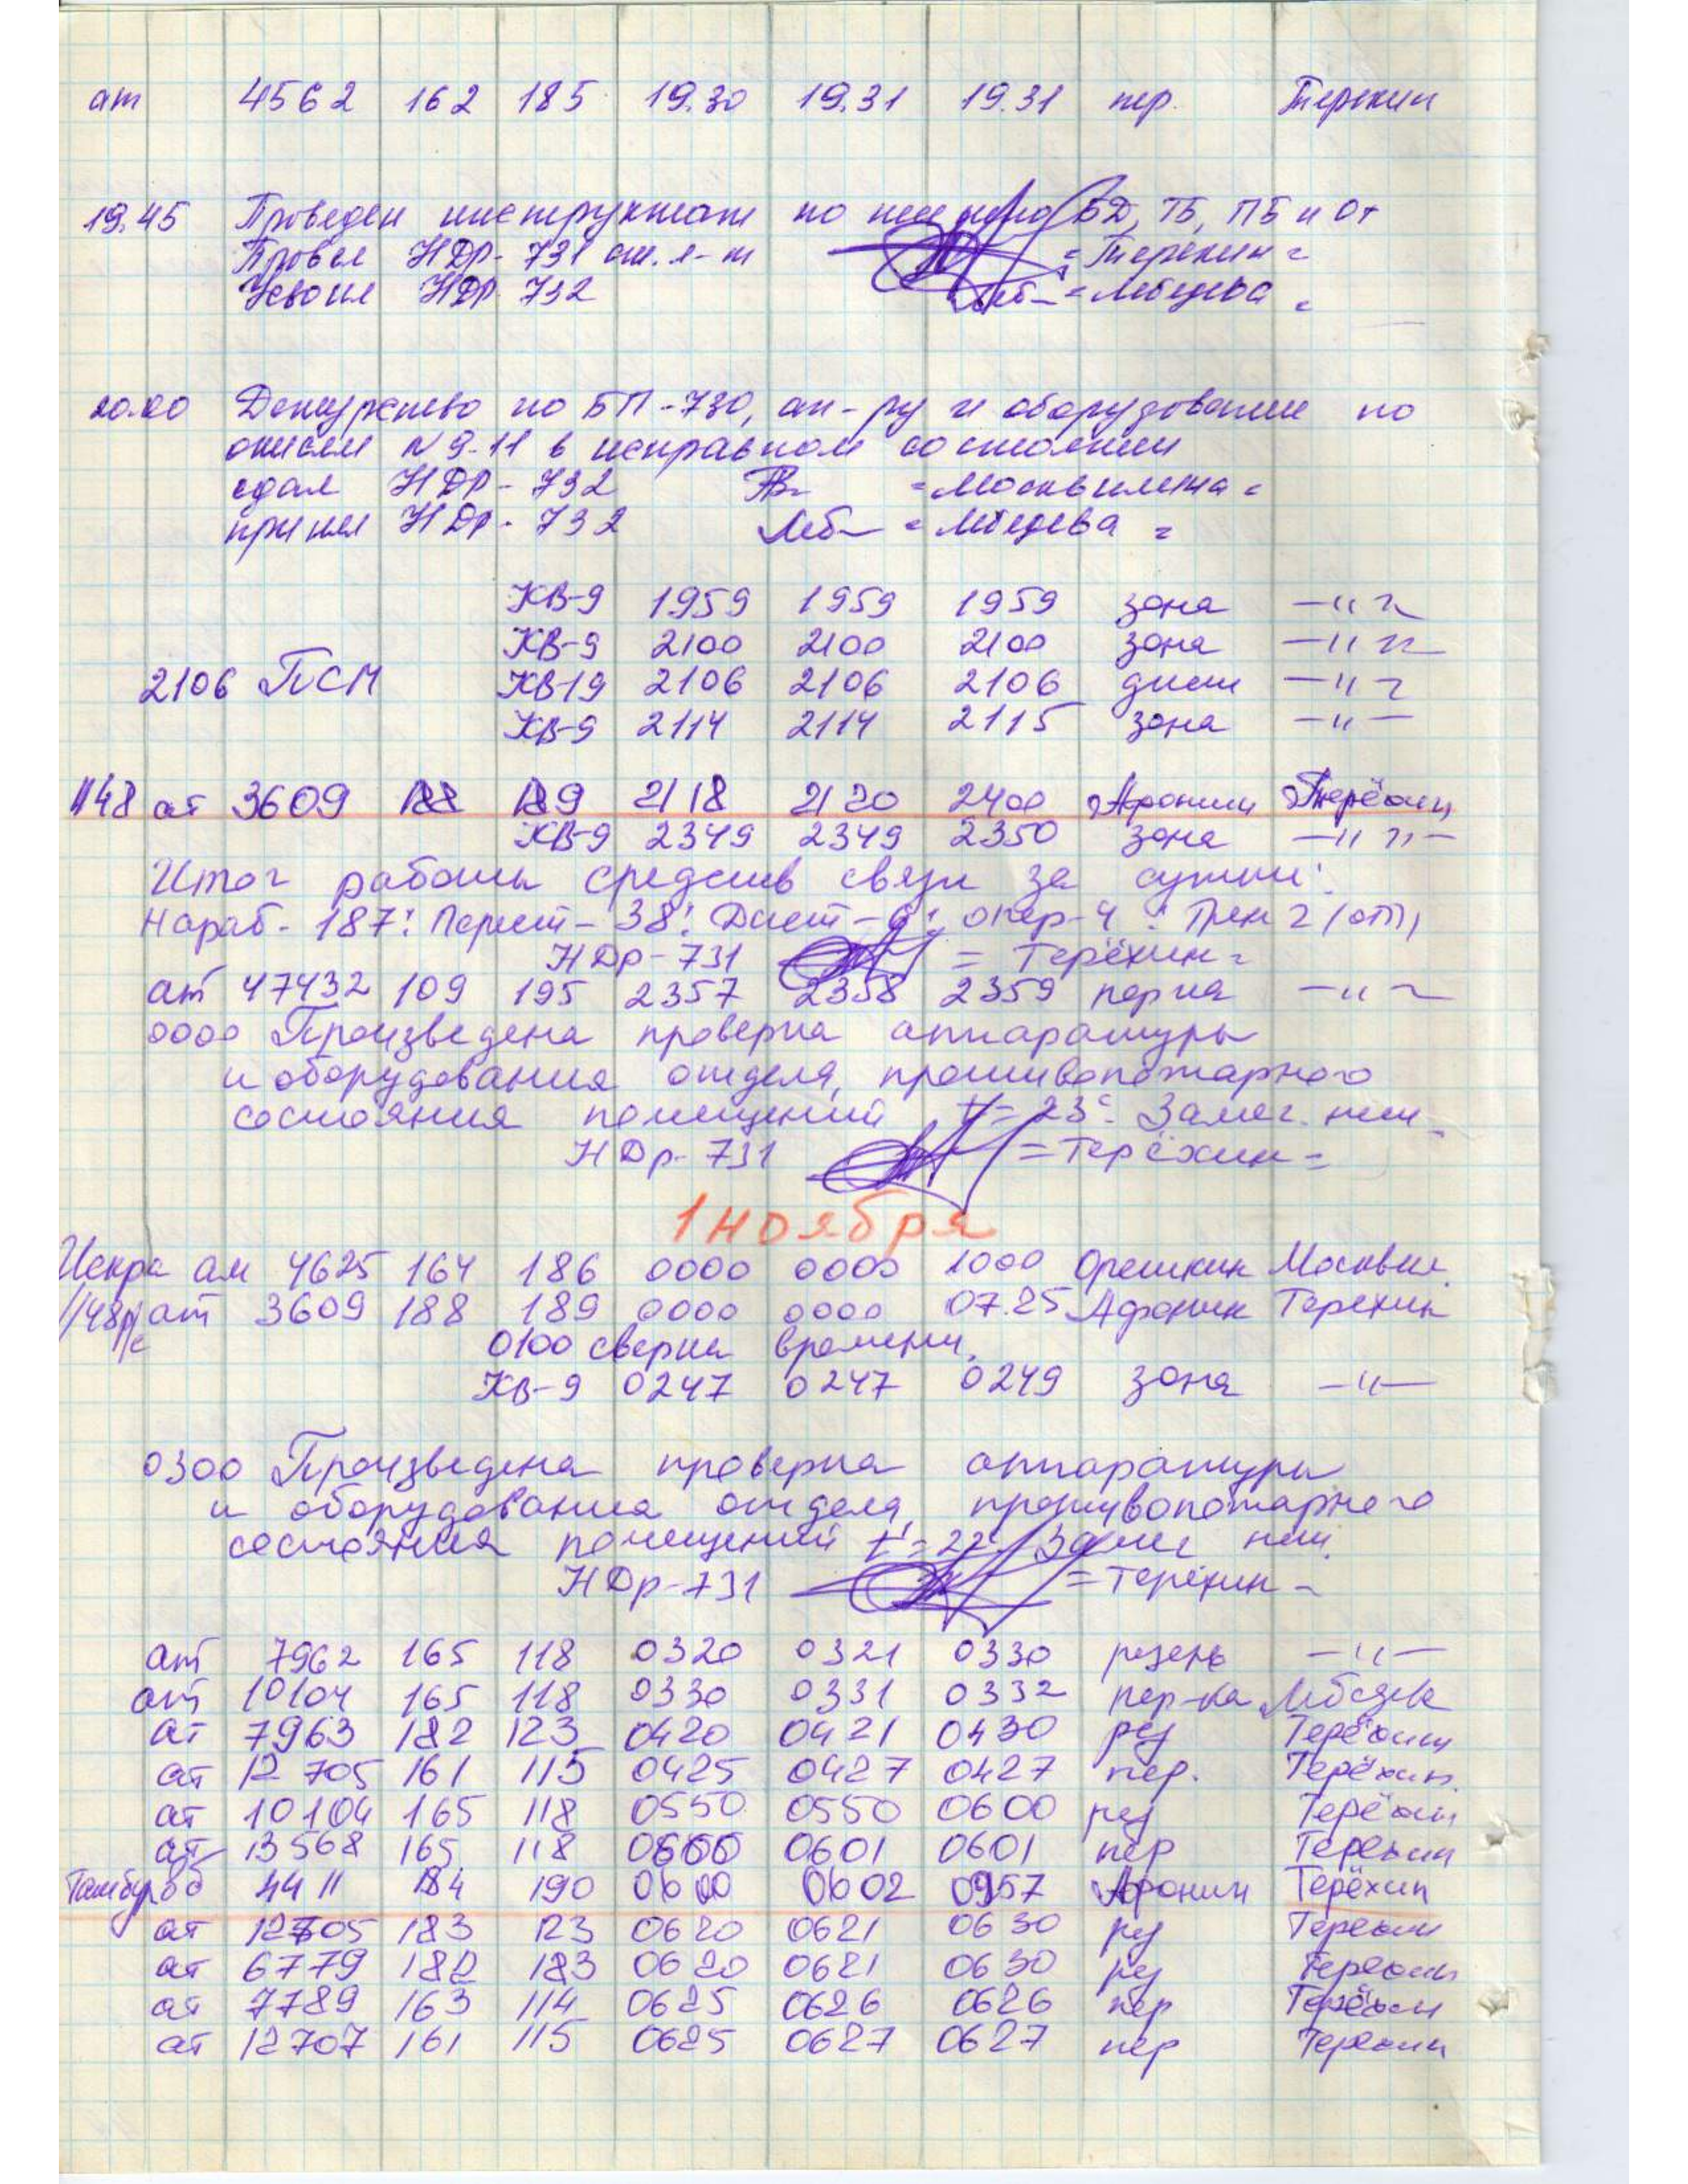 ат 4562 162 185 19.30 19.31 19.31 пер. Терехин
19.45 Проведен инструктаж по несению БД, ТБ, ПБ и От
Провел НДр-731 ст. л-т =Терехин=
Усвоил НДР 732 Леб- =Лебедева=
20.00 Дежурство по БП-730, ап-ру и оборудование по
описям N 9-11 в исправном состоянии
сдал НДР-732 =Москвилина=
принял НДр-732 Леб- =Лебедева=
КВ-9 1959 1959 1959 зона -"-
КВ-9 2100 2100 2100 зона -"-
2106 ПСМ КВ-19 2106 2106 2106 дист -"-
КВ-9 2114 2114 2115 зона -"-
1148 ат 3609 188 189 2118 2120 2400 Афонин Терёхин
КВ-9 2349 2349 2350 зона -"-
Итог работы средств связи за сутки:
Нараб- 187: Перест- 38: Дист-6: опер-4: Трен 2 (от)
НДр-731 =Терёхин=
ат 47432 109 195 2357 2358 2359 пер-ка -"-
0000 Произведена проверка аппаратуры
и оборудования отдела, противопожарного
состояния помещений t°=23° Замеч. нет
НДр-731 =Терёхин=
1 ноября
Искра ат 4625 164 186 0000 0000 1000 Орешкин Москвил
1148 р/с ат 3609 188 189 0000 0000 07.25 Афонин Терехин
0100 сверка времени.
КВ-9 0247 0247 0249 зона -"-
0300 Произведена проверка аппаратуры
и оборудования отдела, противопожарного
состояния помещений t°=22° Замеч нет.
НДр-731 =Терёхин-
ат 7962 165 118 0320 0321 0330 резерв -"-
ат 10104 165 118 0330 0331 0332 пер-ка Лебедева
ат 7963 182 123 0420 0421 0430 рез Терёхин
ат 12705 161 115 0425 0427 0427 пер. Терёхин.
ат 10104 165 118 0550 0550 0600 рез Терёхин
ат 13568 165 118 0600 0601 0601 пер Терехин
Тамбур од 4411 184 190 0600 0602 0957 Афонин Терёхин
ат 12705 183 123 0620 0621 0630 рез Терехин
ат 6779 182 183 0620 0621 0630 рез Терехин
ат 7789 163 114 0625 0626 0626 пер Терёхин
ат 12707 161 115 0625 0627 0627 пер Терехин